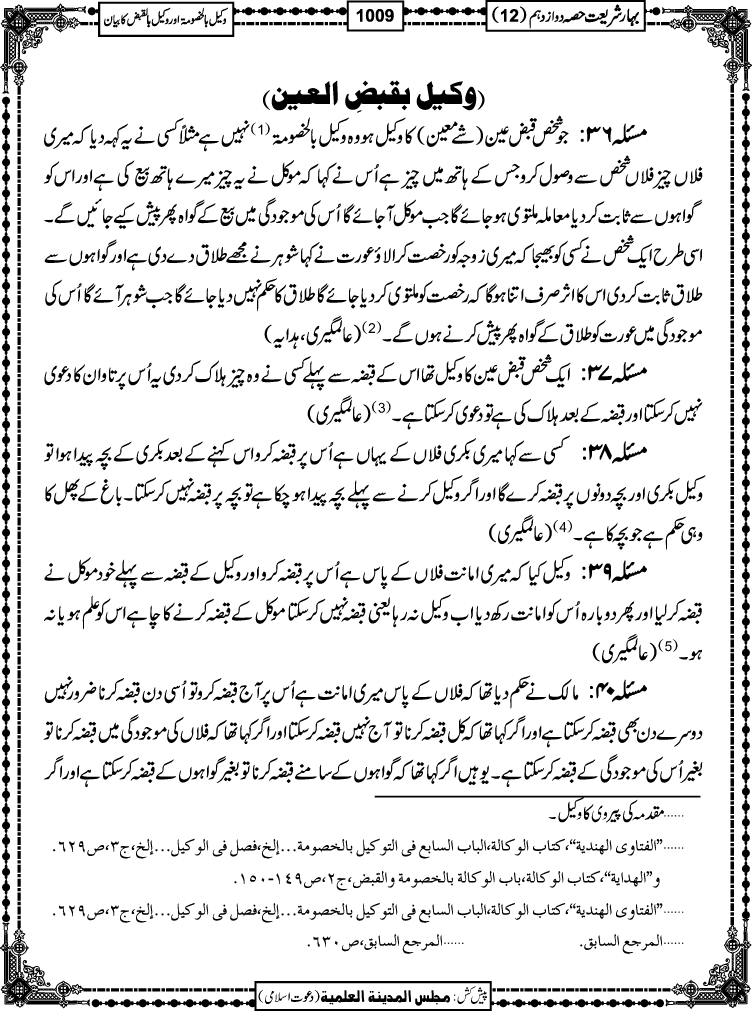 بہار شریعت حصہ دوازدہم (12)
1009
وکیل بالخصومۃ اور وکیل بالقبض کا بیان
(وکیل بقبضِ العین)
مسئلہ ۳۶: جو شخص قبض عین (شے معین) کا وکیل ہو وہ وکیل بالخصومۃ (1) نہیں ہے مثلاً کسی نے یہ کہہ دیا کہ میری
فلاں چیز فلاں شخص سے وصول کرو جس کے ہاتھ میں چیز ہے اُس نے کہا کہ موکل نے یہ چیز میرے ہاتھ بیع کی ہے اور اس کو
گواہوں سے ثابت کر دیا معاملہ ملتوی ہو جائے گا جب موکل آ جائے گا اُس کی موجودگی میں بیع کے گواہ پھر پیش کیے جائیں گے۔
اسی طرح ایک شخص نے کسی کو بھیجا کہ میری زوجہ کو رخصت کرا لاؤ عورت نے کہا شوہر نے مجھے طلاق دے دی ہے اور گواہوں سے
طلاق ثابت کردی اس کا اثر صرف اتنا ہوگا کہ رخصت کو ملتوی کر دیا جائے گا طلاق کا حکم نہیں دیا جائے گا جب شوہر آئے گا اُس کی
موجودگی میں عورت کو طلاق کے گواہ پھر پیش کرنے ہوں گے۔ (2) (عالمگیری، ہدایہ)
مسئلہ ۳۷: ایک شخص قبض عین کا وکیل تھا اس کے قبضہ سے پہلے کسی نے وہ چیز ہلاک کردی یہ اُس پر تاوان کا دعویٰ
نہیں کرسکتا اور قبضہ کے بعد ہلاک کی ہے تو دعویٰ کرسکتا ہے۔ (3) (عالمگیری)
مسئلہ ۳۸: کسی سے کہا میری بکری فلاں کے یہاں ہے اُس پر قبضہ کرو اس کہنے کے بعد بکری کے بچہ پیدا ہوا تو
وکیل بکری اور بچہ دونوں پر قبضہ کرے گا اور اگر وکیل کرنے سے پہلے بچہ پیدا ہو چکا ہے تو بچہ پر قبضہ نہیں کرسکتا۔ باغ کے پھل کا
وہی حکم ہے جو بچہ کا ہے۔ (4) (عالمگیری)
مسئلہ ۳۹: وکیل کیا کہ میری امانت فلاں کے پاس ہے اُس پر قبضہ کرو اور وکیل کے قبضہ سے پہلے خود موکل نے
قبضہ کرلیا اور پھر دوبارہ اُس کو امانت رکھ دیا اب وکیل نہ رہا یعنی قبضہ نہیں کرسکتا موکل کے قبضہ کرنے کا چاہے اس کو علم ہو یا نہ
ہو۔ (5) (عالمگیری)
مسئلہ ۴۰: مالک نے حکم دیا تھا کہ فلاں کے پاس میری امانت ہے اُس پر آج قبضہ کرو تو اُسی دن قبضہ کرنا ضرور نہیں
دوسرے دن بھی قبضہ کرسکتا ہے اور اگر کہا تھا کہ کل قبضہ کرنا تو آج نہیں قبضہ کرسکتا اور اگر کہا تھا کہ فلاں کی موجودگی میں قبضہ کرنا تو
بغیر اُس کی موجودگی کے قبضہ کرسکتا ہے۔ یوہیں اگر کہا تھا کہ گواہوں کے سامنے قبضہ کرنا تو بغیر گواہوں کے قبضہ کرسکتا ہے اور اگر
......مقدمہ کی پیروی کا وکیل۔
......"الفتاوی الھندیۃ"، کتاب الوکالۃ،الباب السابع فی التوکیل بالخصومۃ...إلخ،فصل فی الوکیل...إلخ،ج٣،ص٦٢٩.
و"الھدایۃ"، کتاب الوکالۃ،باب الوکالۃ بالخصومۃ والقبض،ج٢،ص١٤٩-١٥٠.
......"الفتاوی الھندیۃ"، کتاب الوکالۃ،الباب السابع فی التوکیل بالخصومۃ...إلخ،فصل فی الوکیل...إلخ،ج٣،ص٦٢٩.
......المرجع السابق. ......المرجع السابق،ص٦٣٠.
پیش کش: مجلس المدینۃ العلمیۃ (دعوت اسلامی)